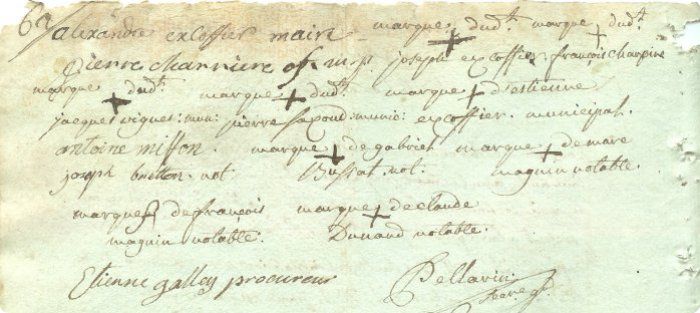 62
alexandre excoffier maire marque + dud.t marque + dud.t
pierre charriere of. mp. joseph excoffier françois charpine
marque + dud.t marque + dud.t marque + d'estienne
jacques viguet: mun: pierre lapoud: munic: excoffier. municipal.
antoine misson. marque + de gabriel marque + de marc
joseph button. not. Bussat. not. magnin notable.
marque de françois marque + de claude
magnin notable. Dunand notable.
Etienne galley procureur Pellarin